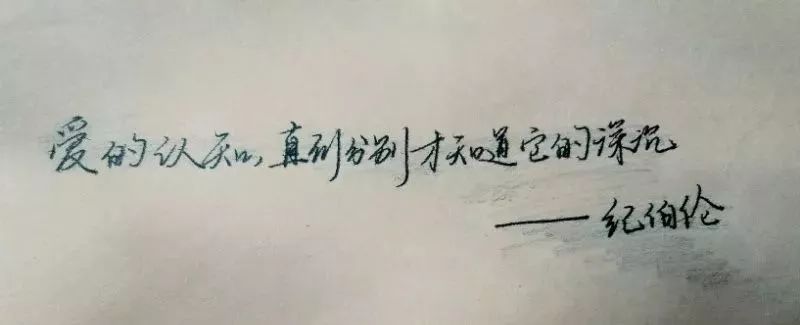 爱的认知,真到分别才知道它的深沉
——纪伯伦